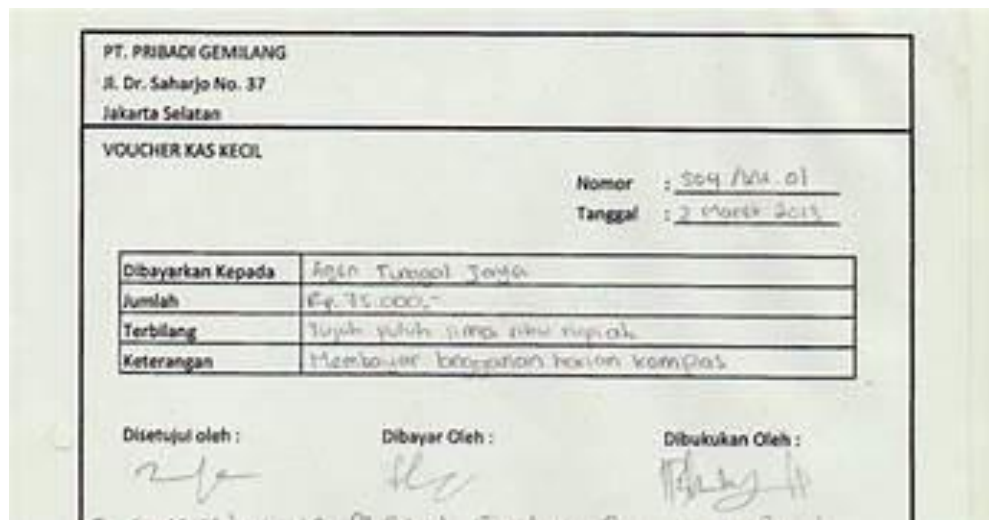 PT. PRIBADI GEMILANG
Jl. Dr. Saharjo No. 37
Jakarta Selatan
VOUCHER KAS KECIL
Nomor :
Tanggal : Maret
Dibayarkan Kepada Agen Tunggal Jaya
Jumlah Rp. 75.000,-
Terbilang Tujuh puluh lima ribu rupiah
Keterangan Membayar langganan harian kompas
Disetujui oleh : Dibayar Oleh : Dibukukan Oleh :